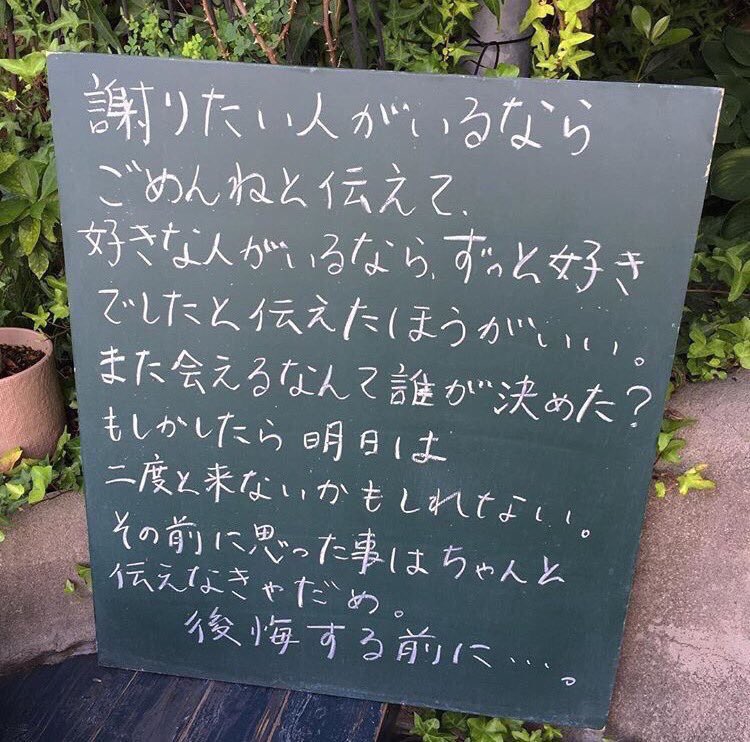 謝りたい人がいるなら
ごめんねと伝えて、
好きな人がいるなら、ずっと好き
でしたと伝えたほうがいい。
また会えるなんて誰が決めた?
もしかしたら明日は
二度と来ないかもしれない。
その前に思った事はちゃんと
伝えなきゃだめ。
後悔する前に…。